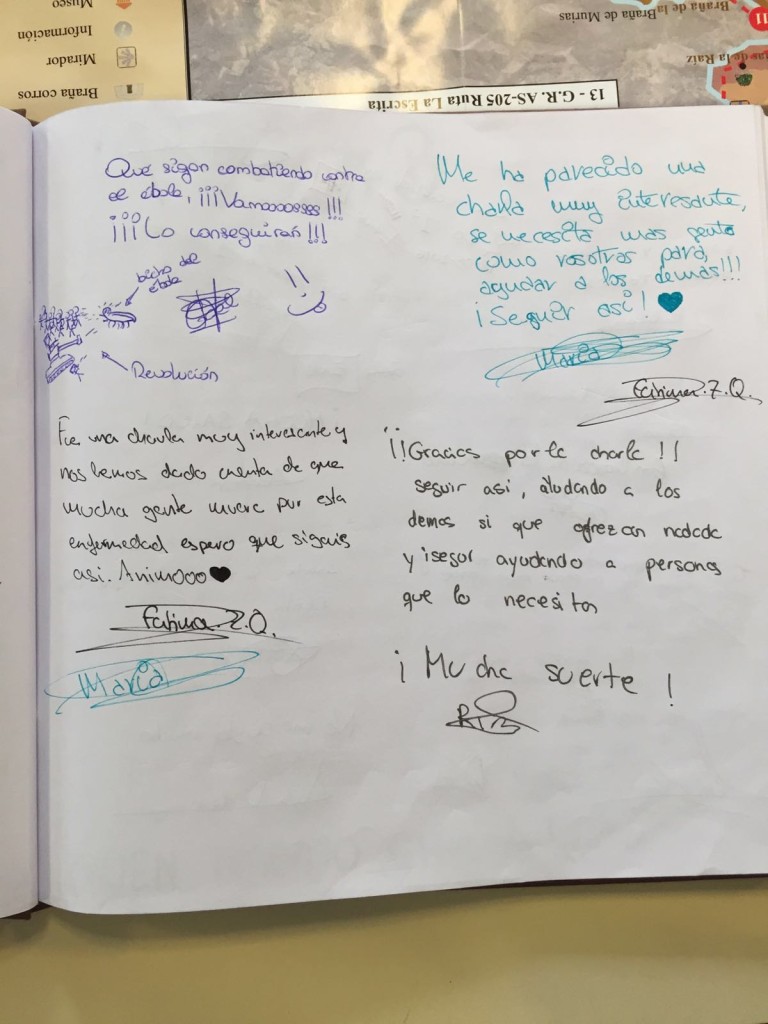 Museo
Información
Mirador
Braña corros
Braña de la Braña de Murias
11
as de la Raiz
13 - G.R. AS-205 Ruta La Escrita
Que sigan combatiendo contra
el ébola, ¡¡¡Vamoooosss!!!
¡¡¡Lo conseguirán!!!
bicho del
ébola
Revolución
Me ha parecido una
charla muy interesante,
se necesita mas gente
como vosotras para,
ayudar a los demás!!!
¡Seguir así!
María
Fatima.Z.Q.
Fue una charla muy interesante y
nos hemos dado cuenta de que
mucha gente muere por esta
enfermedad espero que sigais
asi. Animooo
Fatima.Z.Q.
María
¡¡Gracias por la charla!!
seguir asi, aludando a los
demas si que ofrezcan nadada
y ¡segur ayudando a personas
que lo necesitan
¡Mucha suerte!